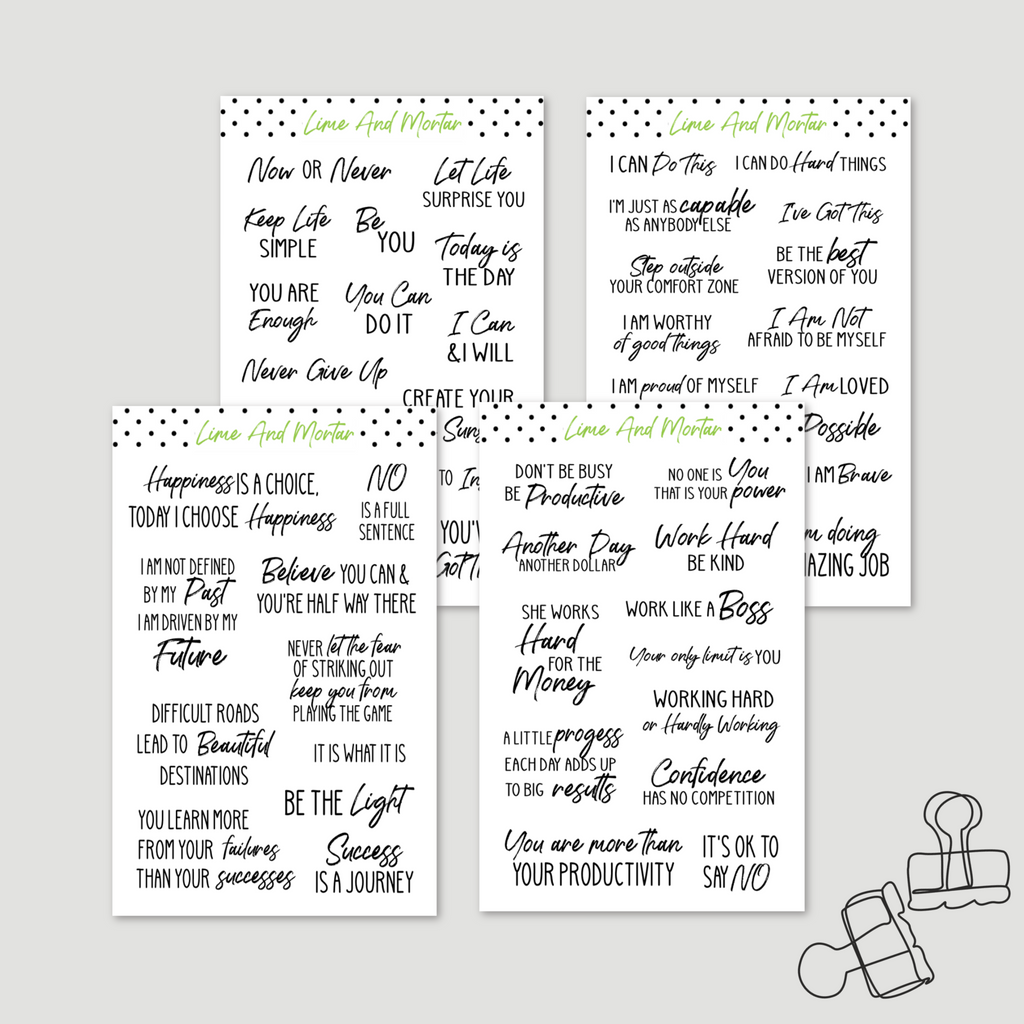 Lime And Mortar
Now OR Never
Let Life
SURPRISE YOU
Keep Life
SIMPLE
Be
YOU
Today is
THE DAY
YOU ARE
Enough
You Can
DO IT
I Can
& I WILL
Never Give Up
CREATE YOUR
TO
YOU'V
Lime And Mortar
I CAN Do This
I CAN DO Hard THINGS
I'M JUST AS capable
AS ANYBODY ELSE
I've Got This
BE THE best
VERSION OF YOU
Step outside
YOUR COMFORT ZONE
I AM WORTHY
of good things
I Am Not
AFRAID TO BE MYSELF
I AM proud OF MYSELF
I Am LOVED
Possible
I AM Brave
m doing
AZING JOB
Lime And Mortar
Happiness IS A CHOICE,
TODAY I CHOOSE Happiness
NO
IS A FULL
SENTENCE
I AM NOT DEFINED
BY MY Past
I AM DRIVEN BY MY
Future
Believe YOU CAN &
YOU'RE HALF WAY THERE
NEVER let the fear
OF STRIKING OUT
keep you from
PLAYING THE GAME
DIFFICULT ROADS
LEAD TO Beautiful
DESTINATIONS
IT IS WHAT IT IS
BE THE Light
YOU LEARN MORE
FROM YOUR failures
THAN YOUR successes
Success
IS A JOURNEY
Lime And Mortar
DON'T BE BUSY
BE Productive
NO ONE IS You
THAT IS YOUR power
Another Day
ANOTHER DOLLAR
Work Hard
BE KIND
SHE WORKS
Hard
FOR THE
Money
WORK LIKE A Boss
Your only limit is YOU
WORKING HARD
or Hardly Working
A LITTLE progess
EACH DAY ADDS UP
TO BIG results
Confidence
HAS NO COMPETITION
You are more than
YOUR PRODUCTIVITY
IT'S OK TO
SAY NO